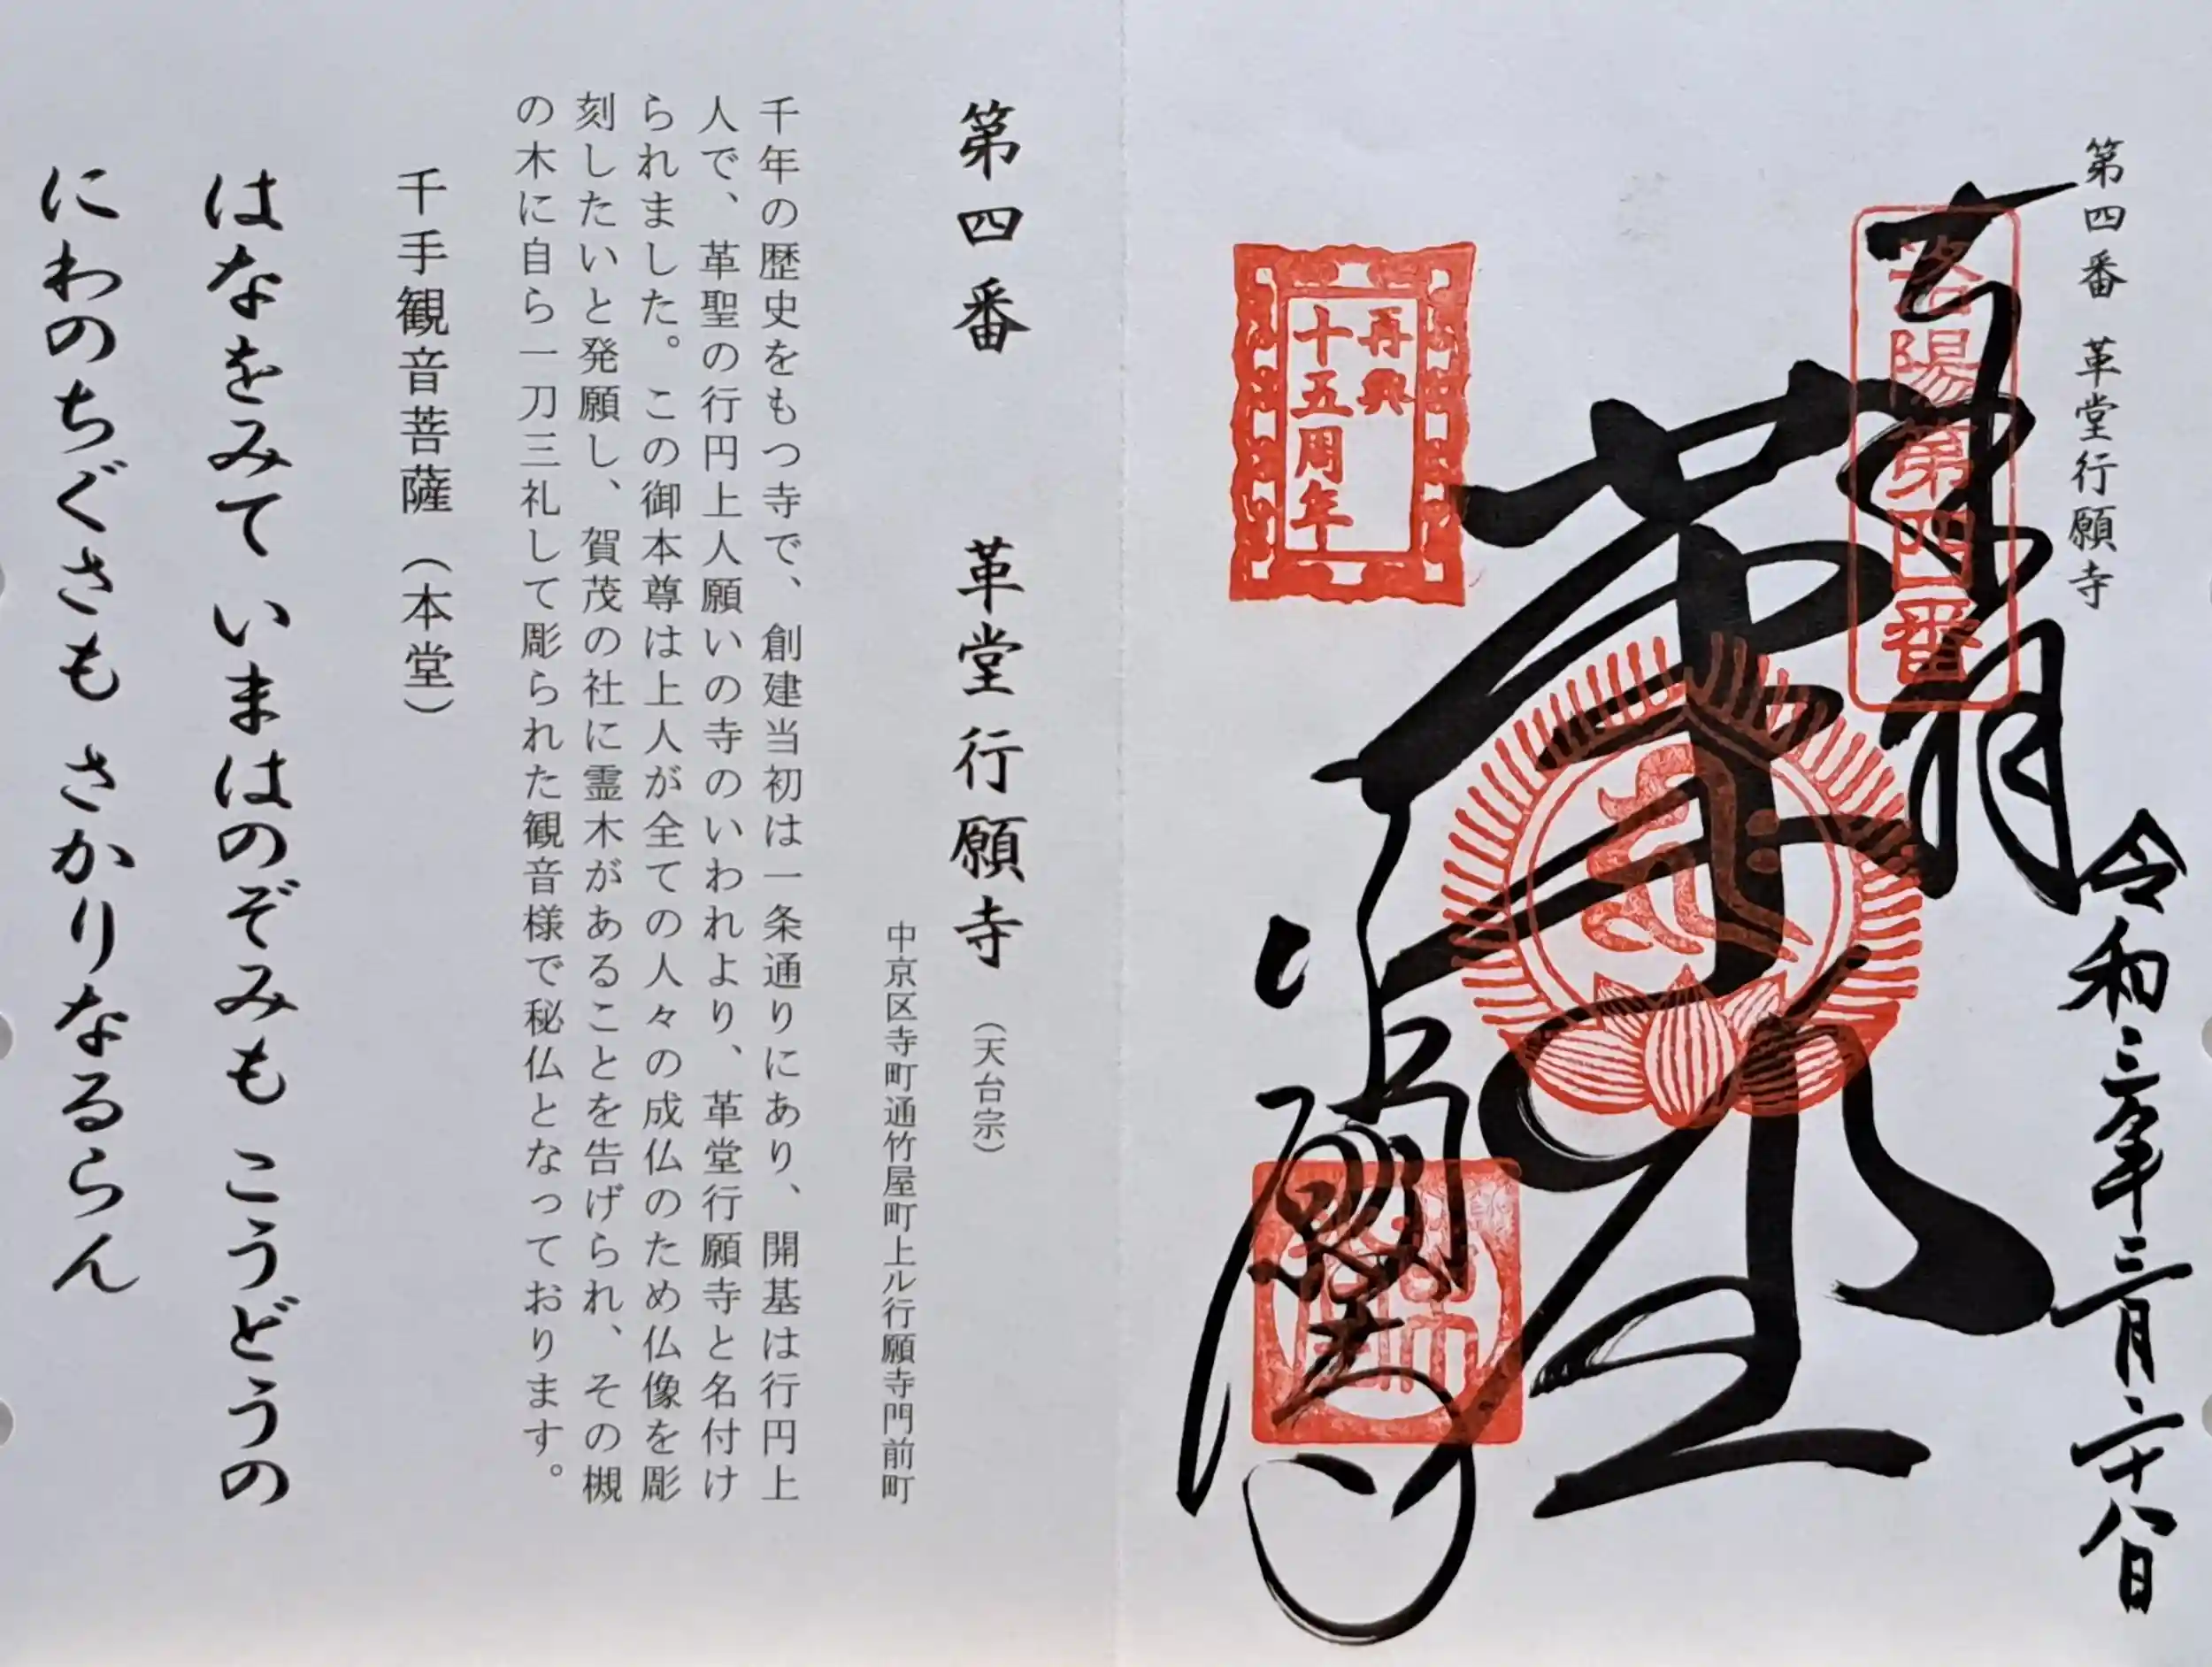 第四番 革堂行願寺
奉拝
令和三年三月二十八日
洛陽第四番
革堂
再興
十五周年
行願寺
第四番 革堂行願寺（天台宗）
中京区寺町通竹屋町上ル行願寺門前町
千年の歴史をもつ寺で、創建当初は一条通りにあり、開基は行円上
人で、革聖の行円上人願いの寺のいわれより、革堂行願寺と名付け
られました。この御本尊は上人が全ての人々の成仏のため仏像を彫
刻したいと発願し、賀茂の社に霊木があることを告げられ、その槻
の木に自ら一刀三礼して彫られた観音様で秘仏となっております。
千手観音菩薩（本堂）
はなをみて いまはのぞみも こうどうの
にわのちぐさも さかりなるらん